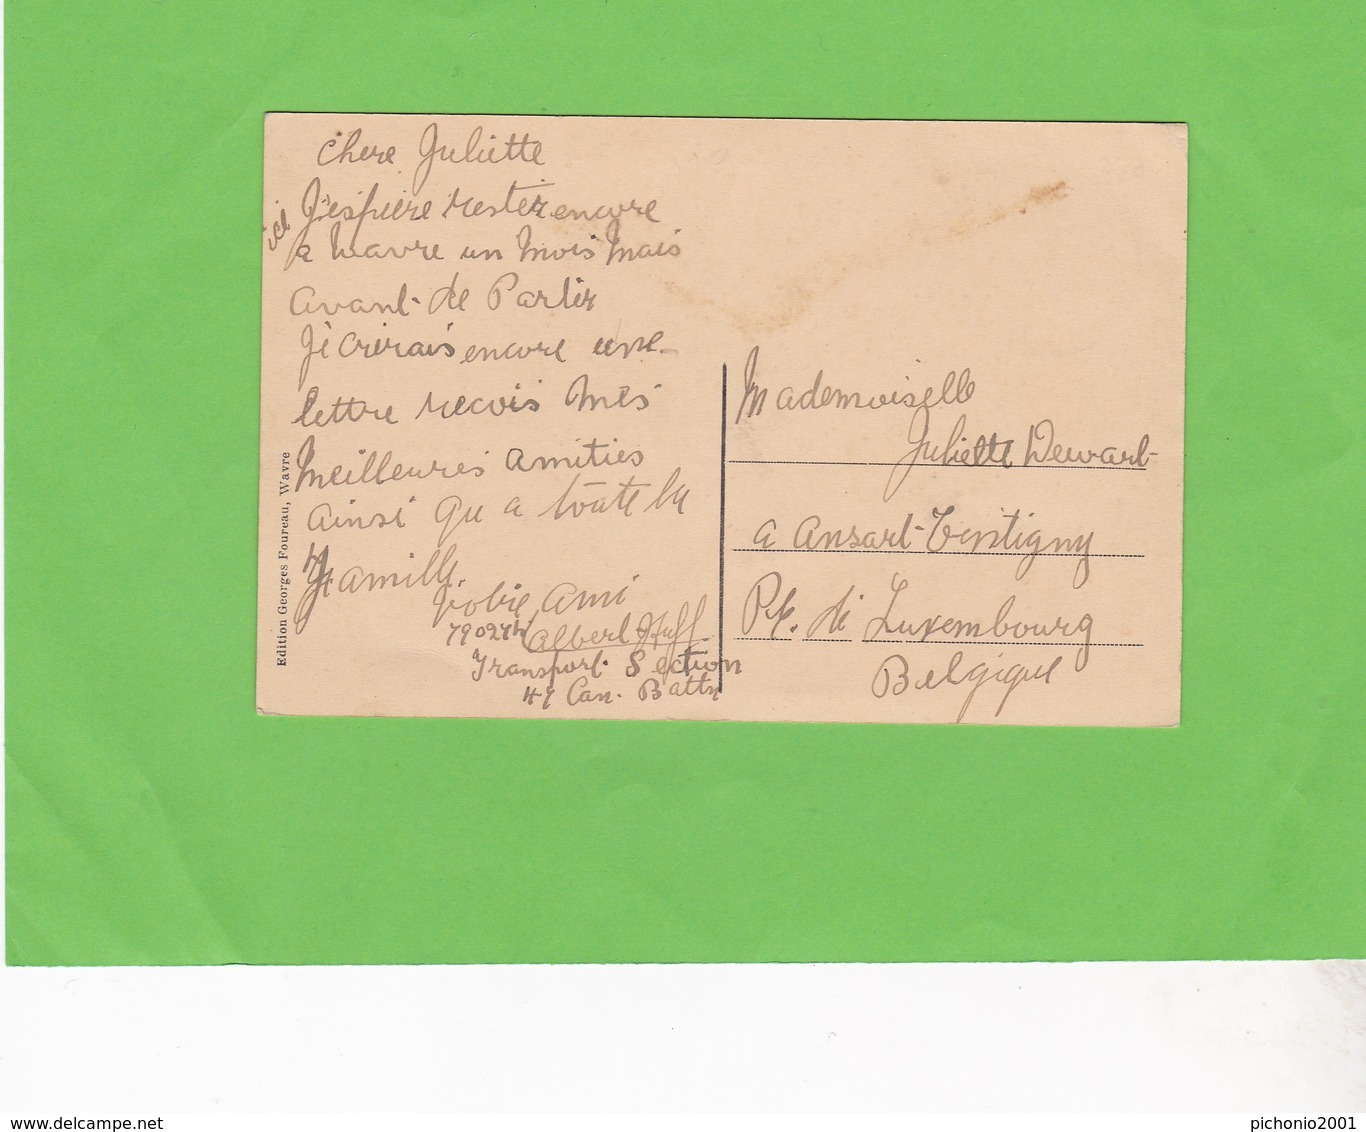 chere Juliette
J'espiere rester encore
ici
a Wavre un Mois Mais
avant de Partir
J'ecrirais encore une
lettre recois Mes
Meilleures amities
ainsi qu a toute la
Famille.
Votre Ami
Albert Huff
Transport Section
49 Can. Battn
Edition Georges Foureau, Wavre
Mademoiselle
Juliette Dewart
a Ansart-Tintigny
de Luxembourg
Belgique
delcampe.net
pichonio2001